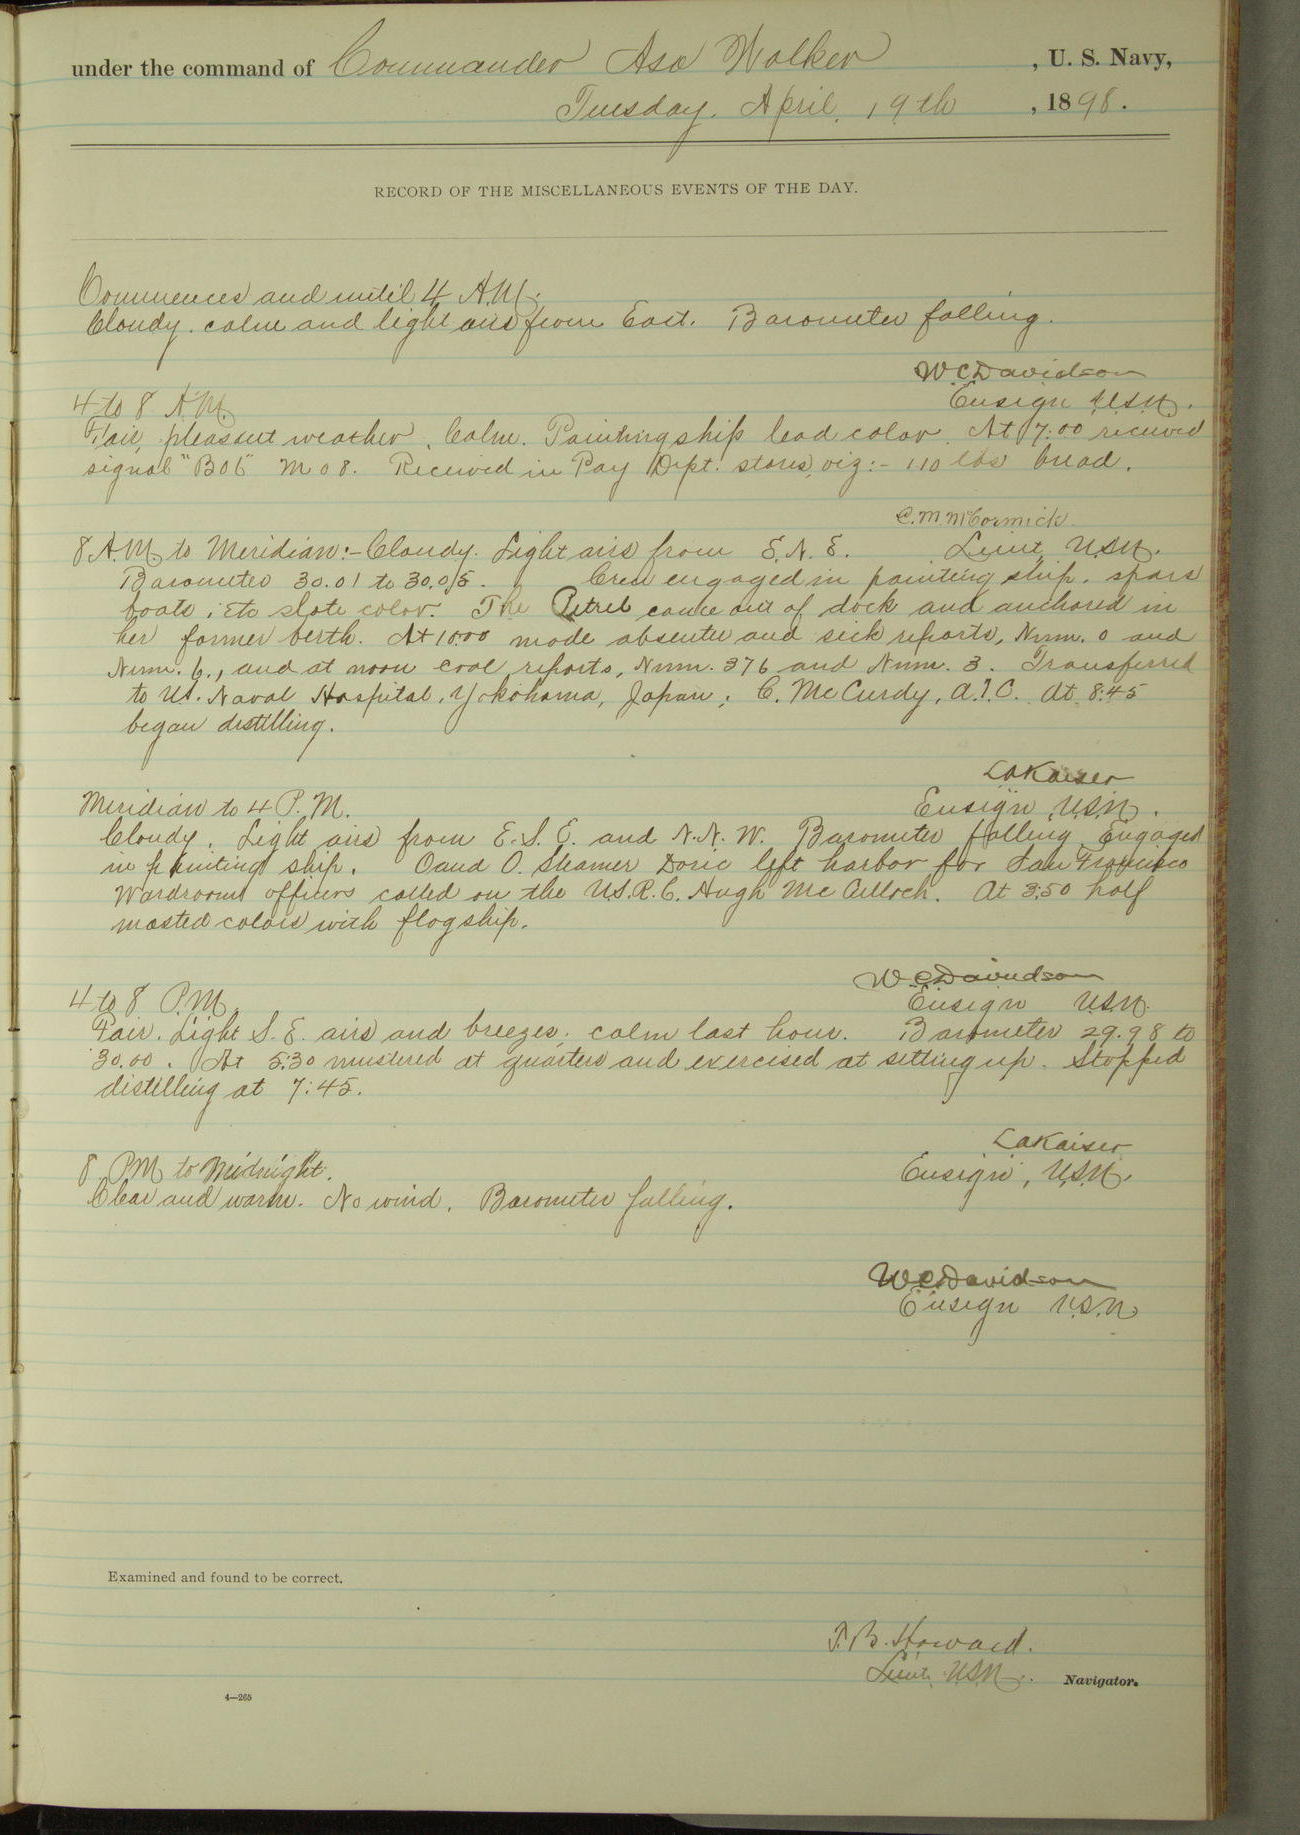 under the command of Commander Asa Walker, U. S. Navy,
Tuesday, April, 19th, 1898.
RECORD OF THE MISCELLANEOUS EVENTS OF THE DAY.
Commences and until 4 A.M.
Cloudy. calm and light airs from East. Barometer falling.
W.C. Davidson
Ensign U.S.N.
4 to 8 A.M.
Fair, pleasant weather. Calm. Painting ship lead color. At 7:00 received
signal M 08. Received in Pay Dept. stores, viz:- 110 lbs bread.
C.M. McCormick
Lieut U.S.N.
8 A.M. to Meridian:- Cloudy. Light airs from E.N.E.
Barometer 30.01 to 30.05. Crew engaged in painting ship, spars
boats, etc slate color. The Petrel came out of dock and anchored in
her former berth. At 10:00 made absentee and sick reports, Num. 0 and
Num. 6., and at noon coal reports, Num. 376 and Num. 3. Transferred
to U.S. Naval Hospital, Yokohama, Japan; C. McCurdy, A.1.C. At 8:45
began distilling.
LAKaiser
Ensign U.S.N.
Meridian to 4 P.M.
Cloudy. Light airs from E.S.E. and N.N.W. Barometer falling. Engaged
in painting ship. O and O. Steamer Doric left harbor for San Francisco
Wardroom officers called on the U.S.R.C. Hugh McCulloch. At 3:50 half
masted colors with flagship.
W.C. Davidson
Ensign U.S.N.
4 to 8 P.M.
Fair. Light S.E. airs and breezes; calm last hour. Barometer 29.98 to
30.00. At 5:30 mustered at quarters and exercised at setting up. Stopped
distilling at 7:45.
LAKaiser
Ensign, U.S.N.
8 P.M. to Midnight.
Clear and warm. No wind. Barometer falling.
W.C. Davidson
Ensign U.S.N
Examined and found to be correct.
T.B. Howard.
Lieut. U.S.N. Navigator.
4—265